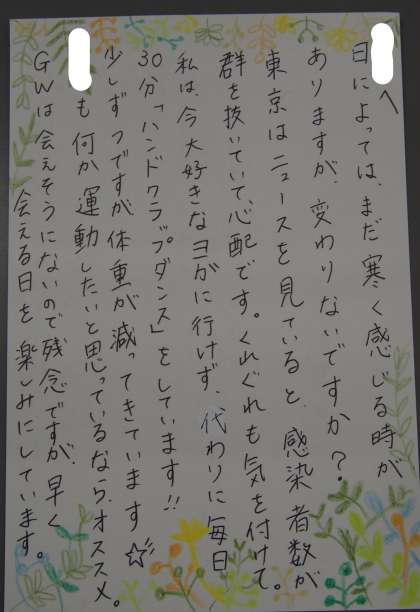 へ
日によっては、まだ寒く感じる時が
ありますが、変わりないですか?
東京はニュースを見ていると、感染者数が
群を抜いていて、心配です。くれぐれも気を付けて。
私は、今大好きなヨガに行けず、代わりに毎日
30分「ハンドクラップダンス」をしています!!
少しずつですが体重が減ってきています☆
も何か運動したいと思っているなら、オススメ。
GWは会えそうにないので残念ですが、早く
会える日を楽しみにしています。